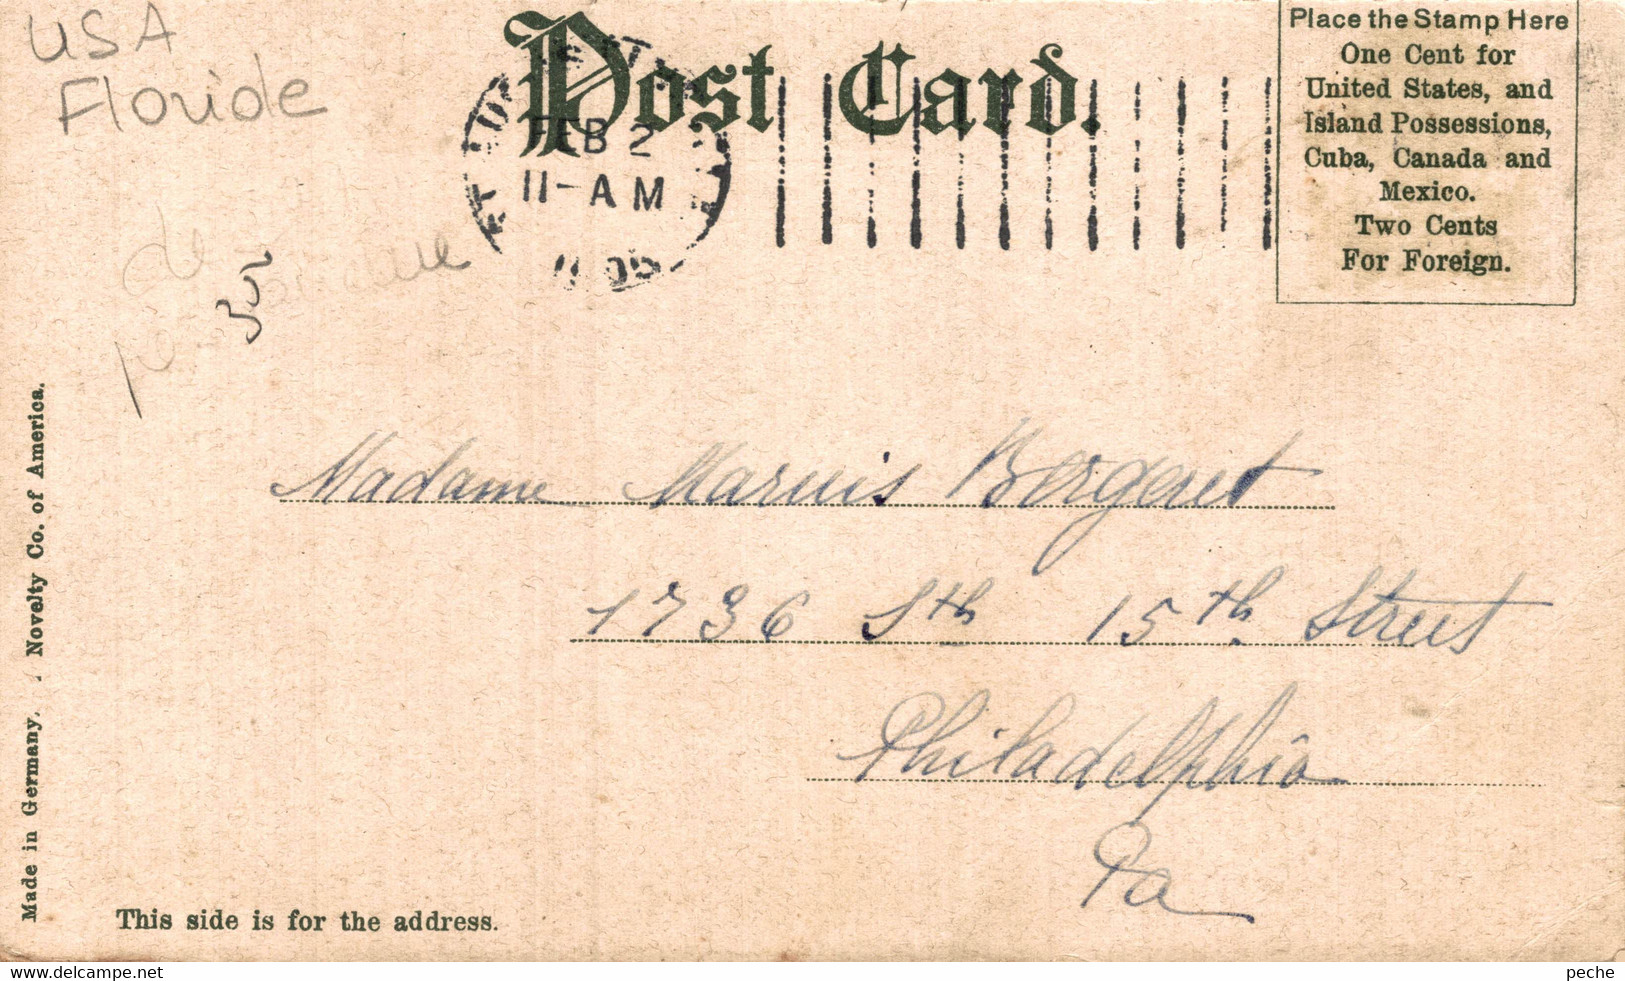 USA
Floride
Post Card.
FEB 2
11-AM
Place the Stamp Here
One Cent for
United States, and
Island Possessions,
Cuba, Canada and
Mexico.
Two Cents
For Foreign.
Madame Marius Bergeret
1736 Sth 15th Street
Philadelphia
Pa
This side is for the address.
Made in Germany. Novelty Co. of America.
www.delcampe.net
peche